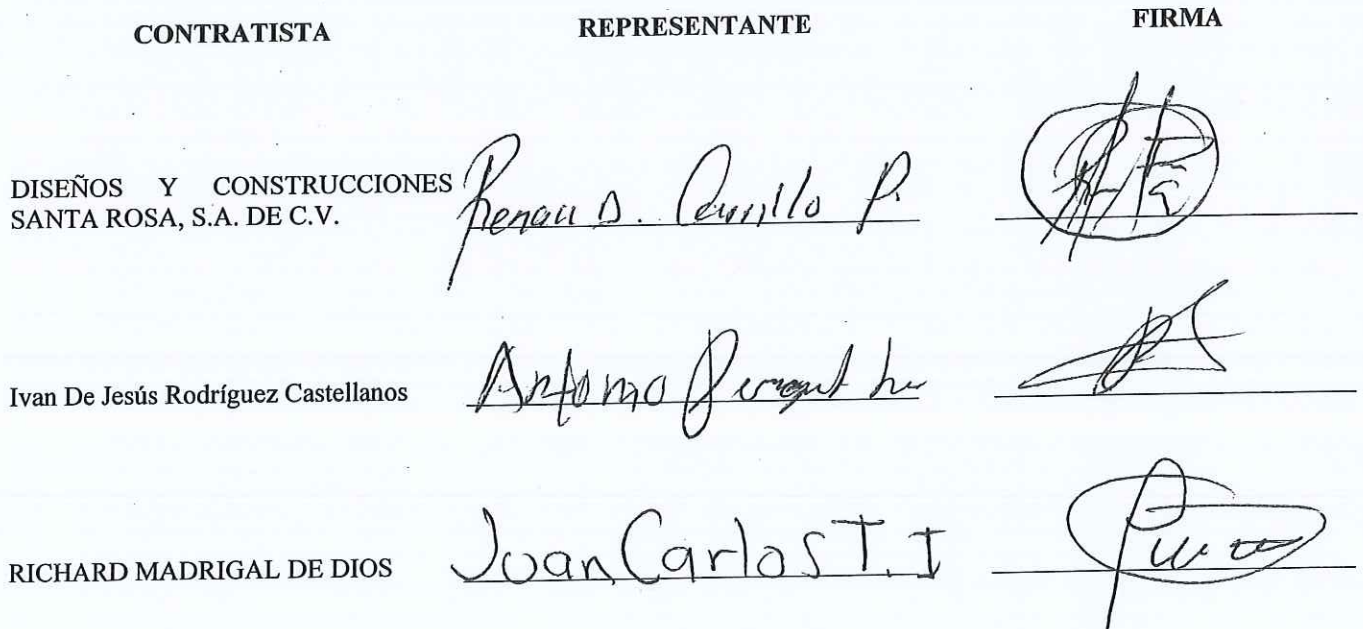 CONTRATISTA REPRESENTANTE FIRMA
DISEÑOS Y CONSTRUCCIONES
SANTA ROSA, S.A. DE C.V.
D. P.
Ivan De Jesús Rodríguez Castellanos Antonio
RICHARD MADRIGAL DE DIOS Juan Carlos T. I